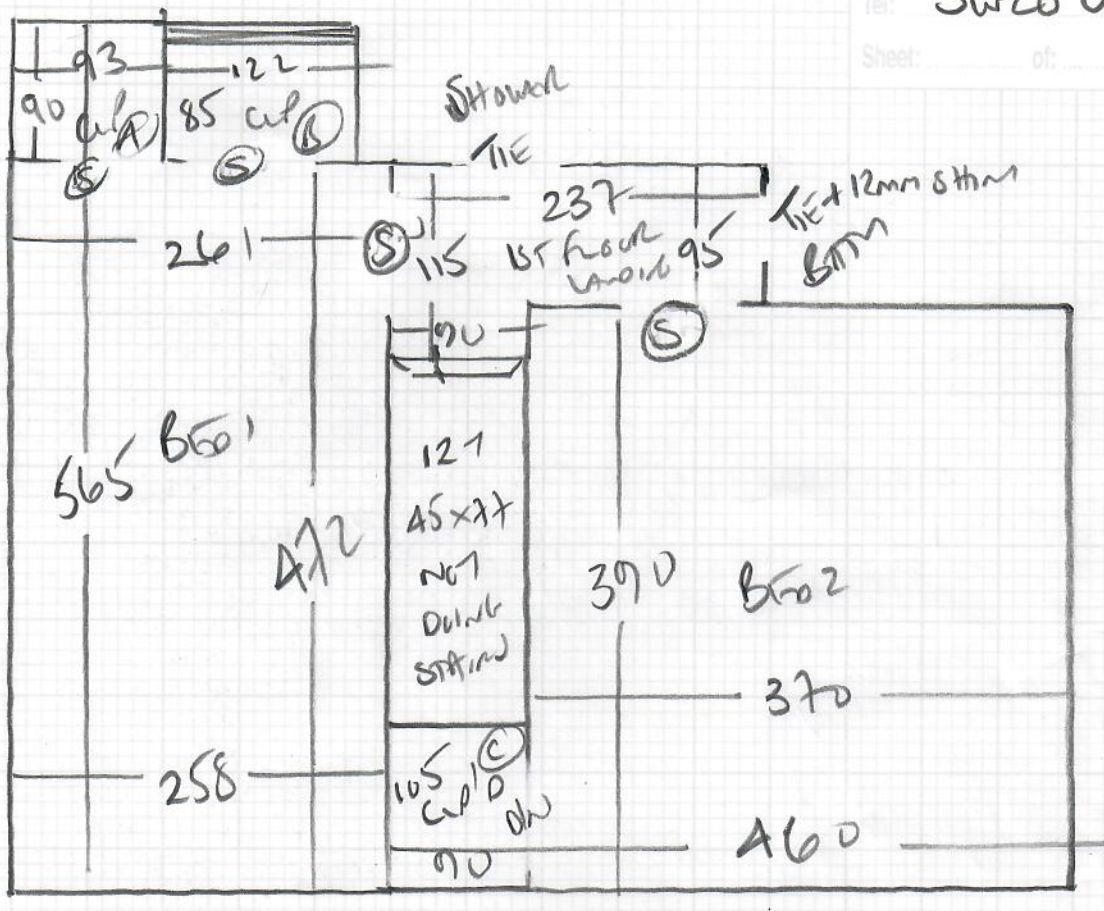 Tel: SW20 0
Sheet: of:
93
122
90 Cup A
85 Cup B
S
S
SHOWER
TIE
237
TIE + 12mm SHIM
BTM
261
S
115
1ST FLOOR
LANDING
95
90
S
BED 1
565
472
127
45x77
NOT
DOING
STAIRS
390
BED 2
370
258
105
C
Cup D
D/W
90
460